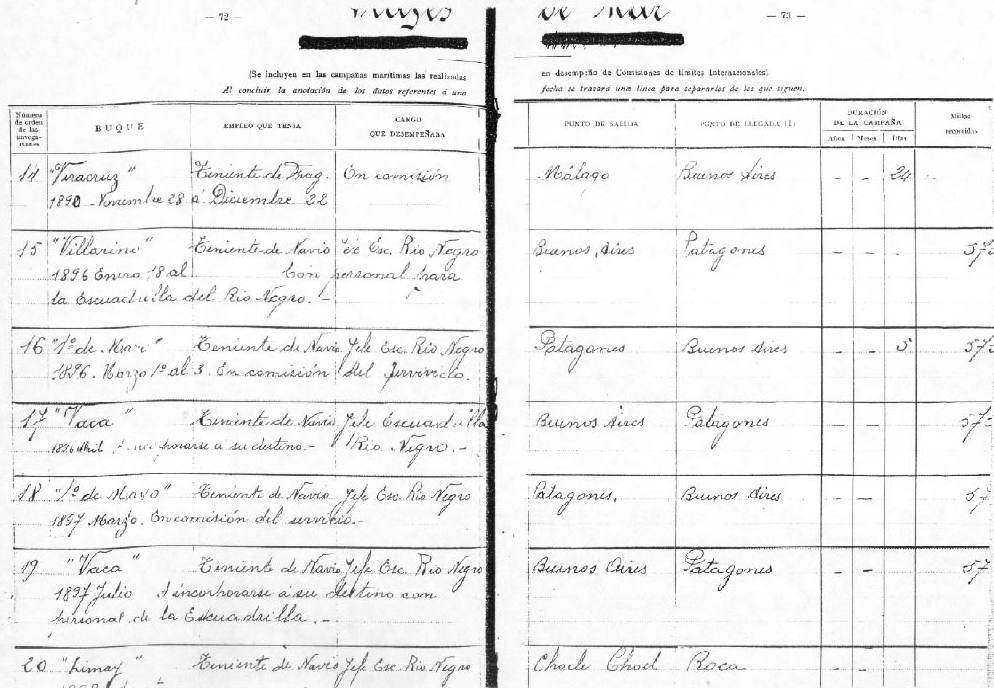 — 72 —
Viajes de Mar
— 73 —
(Se incluyen en las campañas marítimas las realizadas en desempeño de Comisiones de límites Internacionales)
Al concluir la anotación de los datos referentes á una fecha se trazará una línea para separarlos de los que siguen.
Número de orden de las navegaciones
BUQUE
EMPLEO QUE TENIA
CARGO QUE DESEMPEÑABA
PUNTO DE SALIDA
PUNTO DE LLEGADA (1)
DURACIÓN DE LA CAMPAÑA
Años Meses Días
Millas recorridas
14 "Veracruz" Teniente de Frag. En comisión Málaga Buenos Aires - - 24
1890 - Noviembre 28 á Diciembre 22
15 "Villarino" Teniente de Navio Jefe Esc. Rio Negro Buenos Aires Patagones - - 57
1896 Enero 18 al Con personal para
la Escuadrilla del Rio Negro. -
16 "1º de Mayo" Teniente de Navio Jefe Esc. Rio Negro Patagones Buenos Aires - - 5 57
1896. Marzo 1º al 3. En comisión del servicio.
17 "Vaca" Teniente de Navio Jefe Escuadrilla Buenos Aires Patagones 57
1896 Abril á su destino. - Rio Negro. -
18 "1º de Mayo" Teniente de Navio Jefe Esc. Rio Negro Patagones. Buenos Aires - - 57
1897 Marzo. En comisión del servicio. -
19 "Vaca" Teniente de Navio Jefe Esc. Rio Negro Buenos Aires Patagones - - 57
1897 Julio A incorporarse á su destino con
personal de la Escuadrilla. -
20 "Limay" Teniente de Navio Jefe Esc. Rio Negro Choele Choel Roca - -